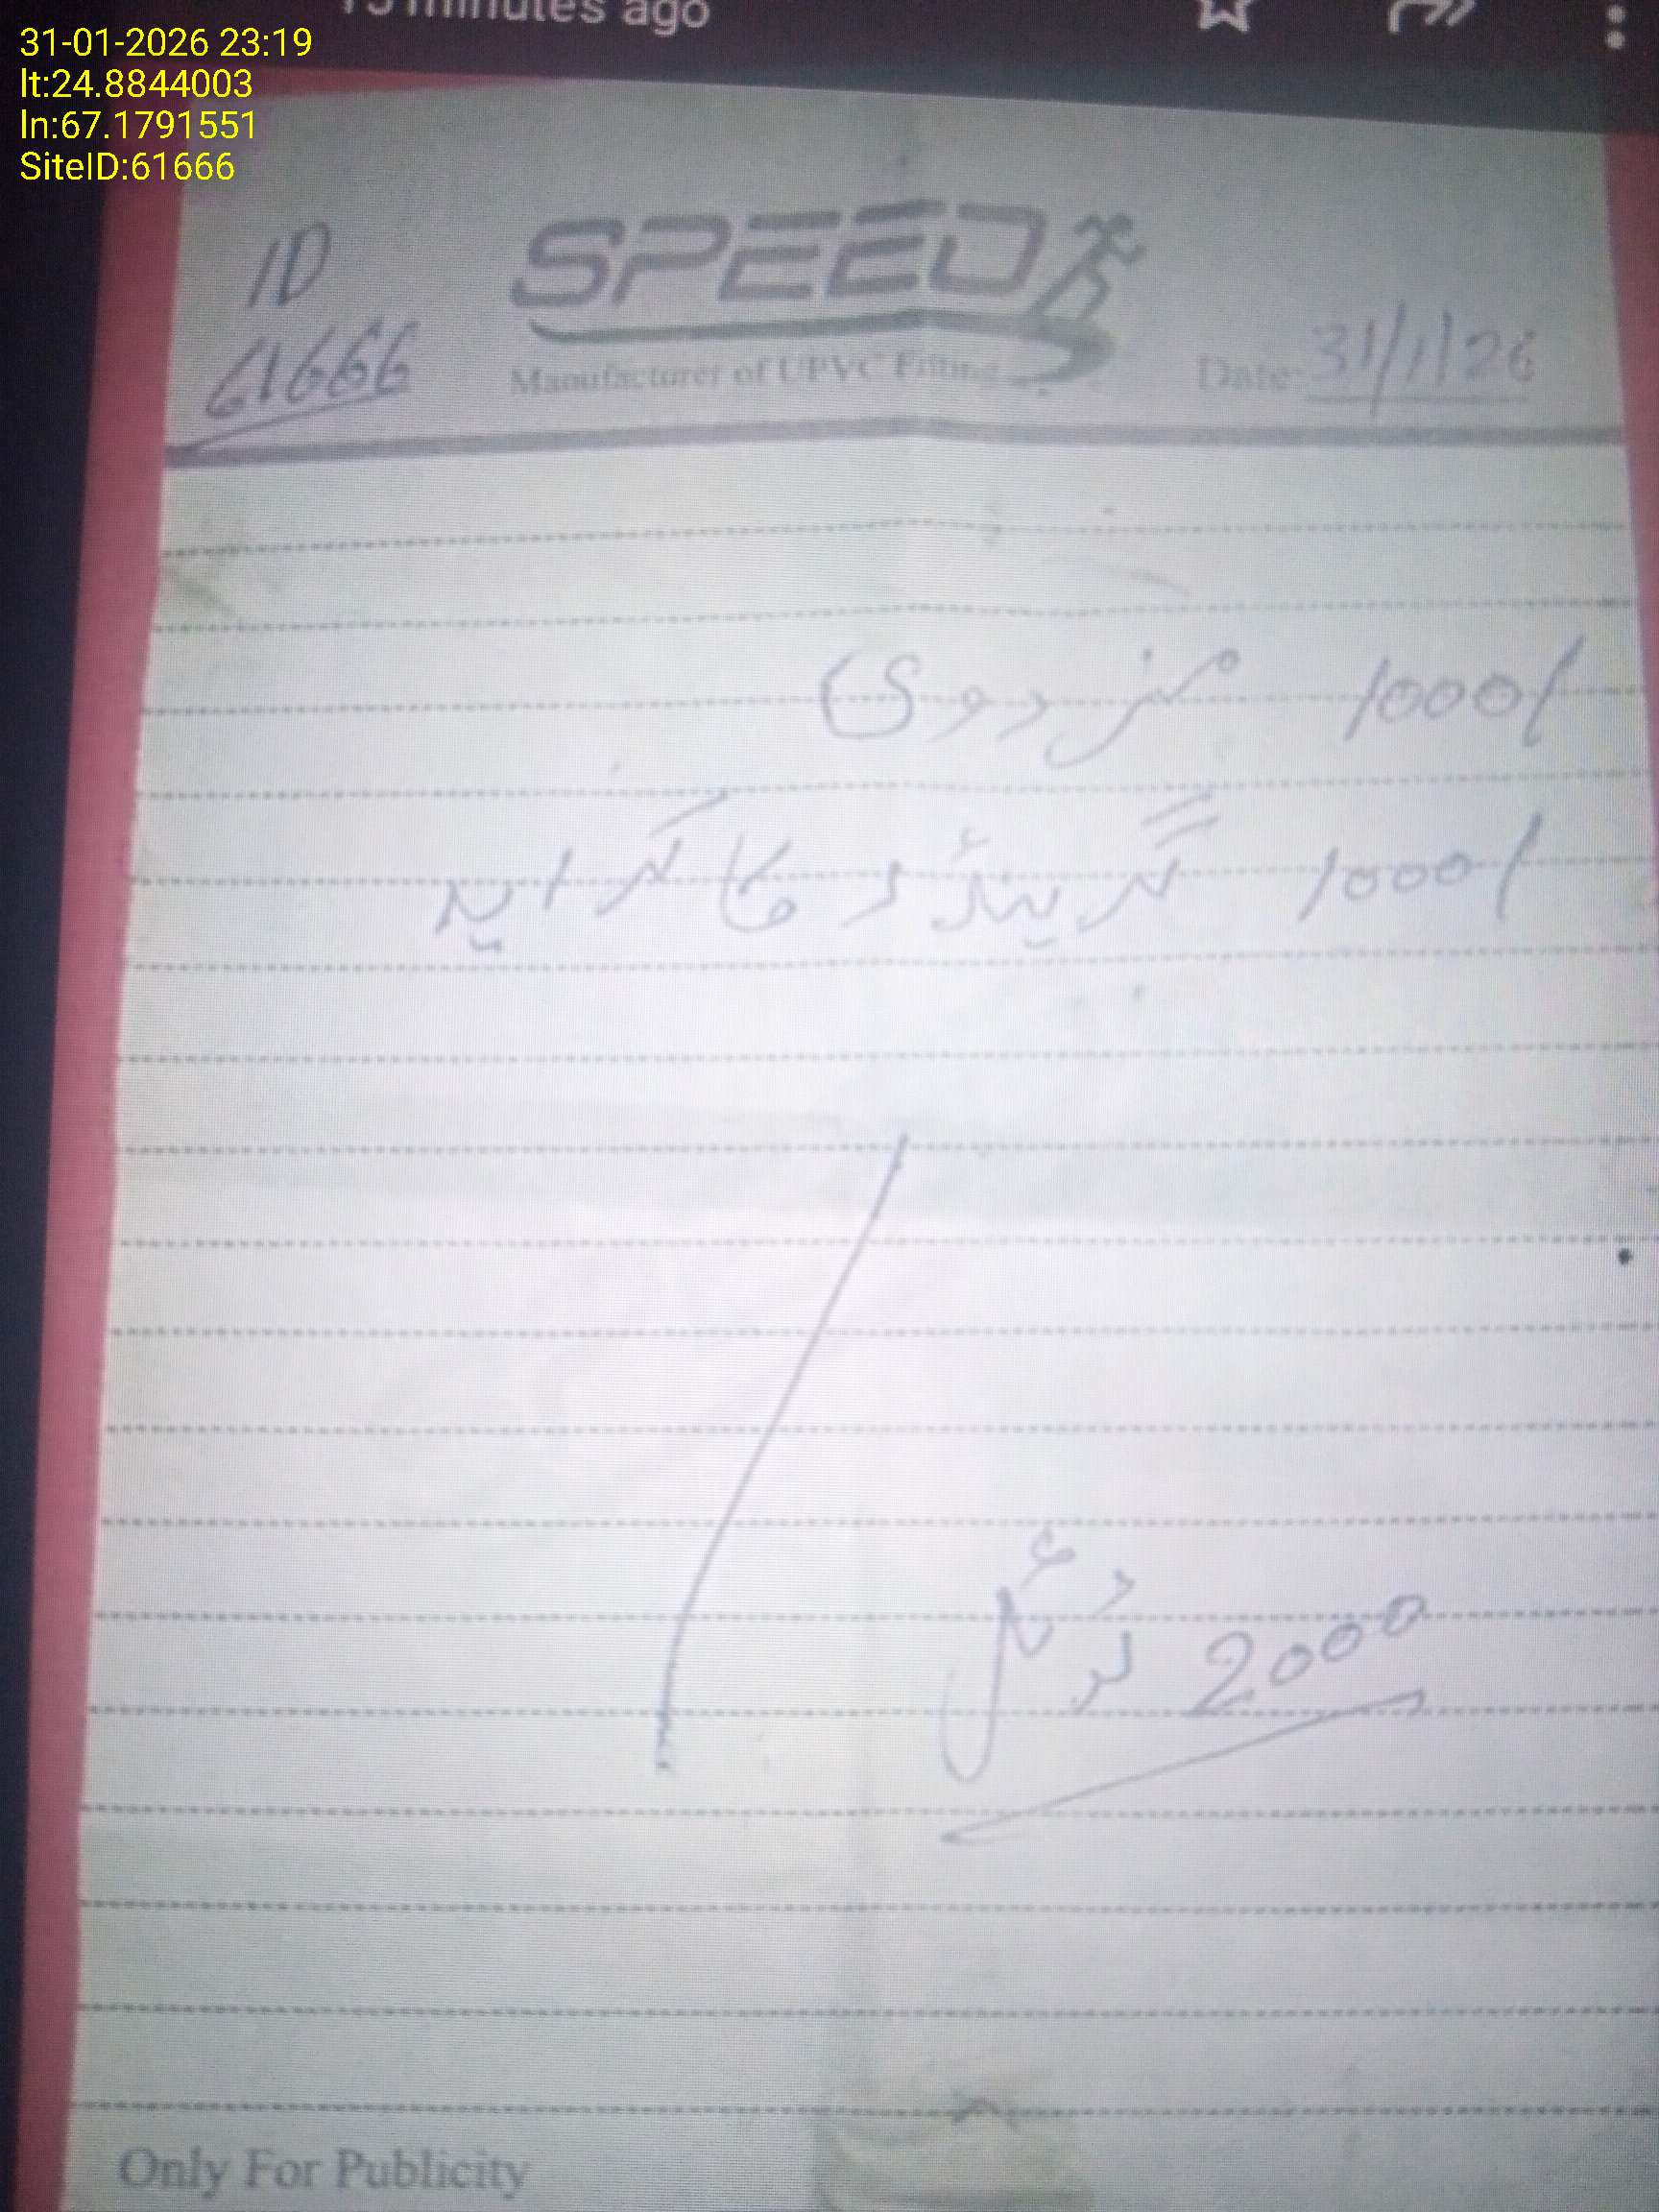 minutes ago
31-01-2026 23:19
lt:24.8844003
ln:67.1791551
SiteID:61666
ID
61666
SPEED
Manufacturer of UPVC Fitting
Date: 31/1/26
1000/ مزدوری
1000/ گرینڈر کا کرایہ
2000
Only For Publicity